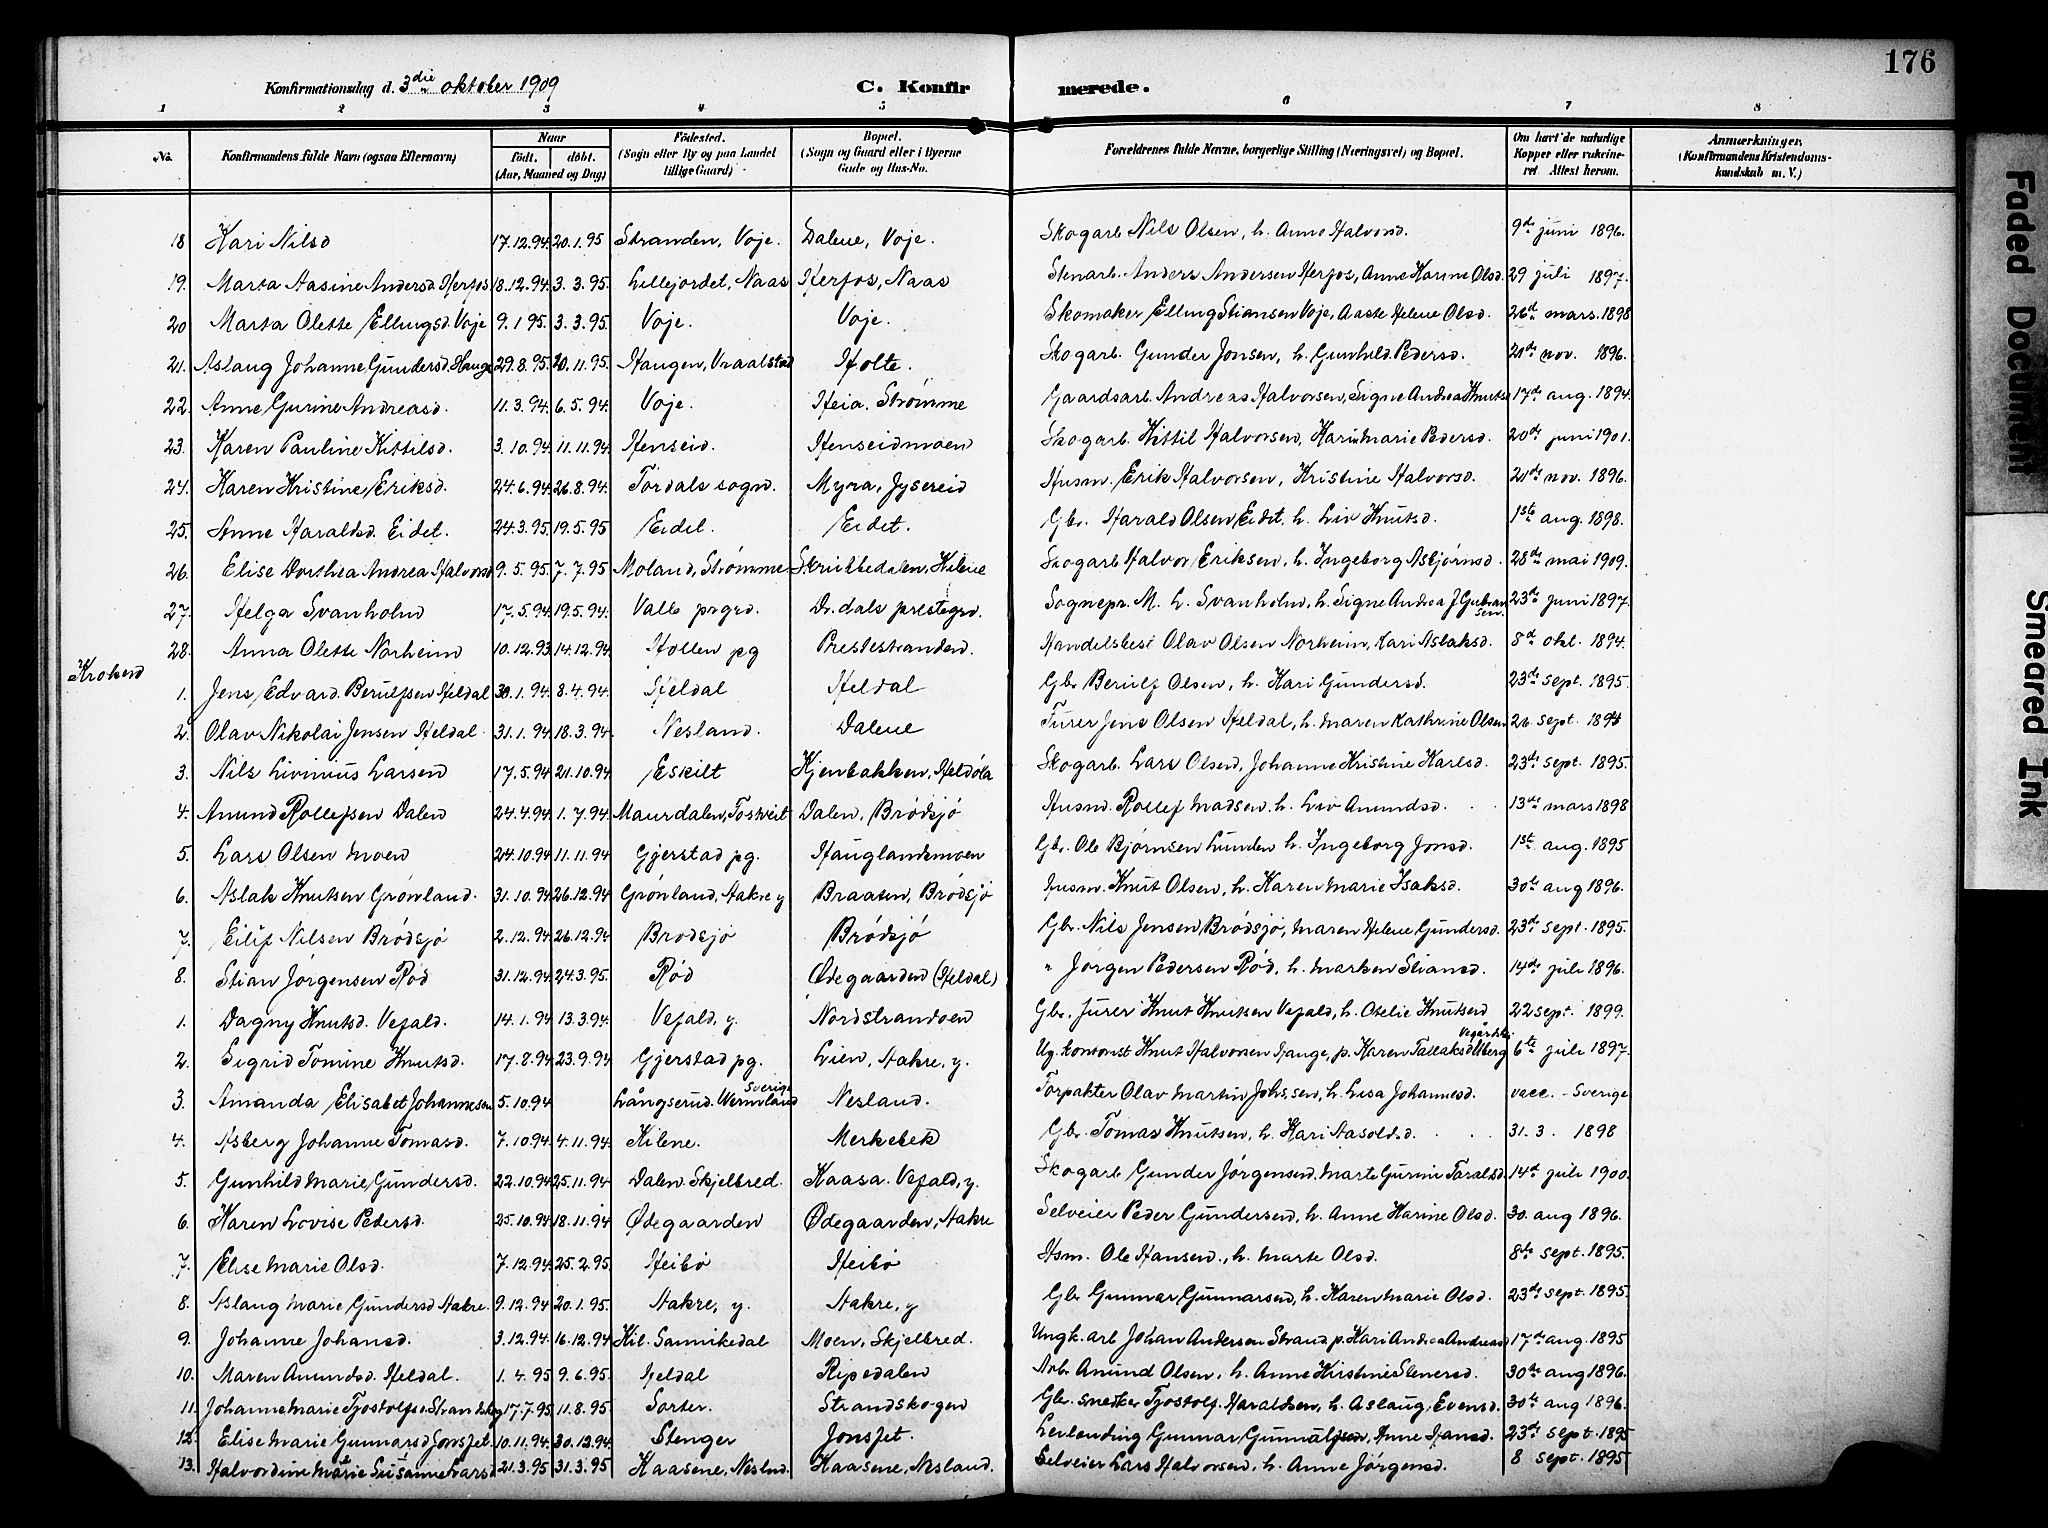 176
Konfirmationsdag d. 3die oktober 1909 C. Konfirmerede.
1 2 3 4 5 6 7 8
No. Konfirmandens fulde Navn (ogsaa Efternavn) Naar født. døbt. (Aar, Maaned og Dag) Fødested. (Sogn eller By og paa Landet tillige Gaard) Bopæl. (Sogn og Gaard eller i Byerne Gade og Hus-No. Forældrenes fulde Navne, borgerlige Stilling (Næringsvei) og Bopæl. Om havt de naturlige Kopper eller vakcineret Attest herom. Anmærkninger. (Konfirmandens Kristendomskundskab m. V.)
18 Kari Nilsd 17.12.94. 20.1.95 Stranden, Voje. Dalene, Voje. Skogarb Nils Olsen, h. Anne Halvorsd. 9de juni 1896.
19. Marta Aasine Andersd Herfos 18.12.94. 3.3.95. Lillejordet, Naas Herfos, Naas Stenarb. Anders Andersen Herfos, Anne Karine Olsd. 29 juli 1897.
20 Marta Olette Ellingsd. Voje 9.1.95. 3.3.95. Voje. Voje. Skomaker Elling Stiansen Voje, Aaste Helene Olsd. 26de mars. 1898
21. Aslaug Johanne Gundersd. Hauge 29.8.95. 20.11.95. Haugen, Vraalstad Holte. Skogarb. Gunder Jonsen, h. Gunhild Pedersd. 21de nov. 1896.
22. Anne Gurine Andreasd. 11.3.94. 6.5.94. Voje. Heia. Strømme Gaardsarb. Andreas Halvorsen, Signe Andrea Knutsd 17de aug. 1894.
23. Karen Pauline Kittilsd. 3.10.94. 11.11.94. Henseid. Henseidmoen Skogarb. Kittil Halvorsen, Kari Marie Pedersd. 20de juni 1901.
24. Karen Kristine Eriksd. 24.6.94. 26.8.94. Tørdals sogn. Myra, Jysereid Husm. Erik Halvorsen, Kristine Halvorsd. 21de nov. 1896.
25. Anne Haraldsd. Eidet. 24.3.95. 19.5.95 Eidet. Eidet. Gbr. Harald Olsen Eidet, h. Liv Knutsd. 1ste aug. 1898.
26. Elise Dorthea Andrea Halvorsd 9.5.95. 7.7.95 Moland, Strømme Skrikkedalen, Kilene Skogarb Halvor Eriksen, h. Ingeborg Asbjørnsd. 28de mai 1909.
27. Helga Svanholm 17.5.94. 19.5.94. Valle prgrd. Dr.dals prestegrd. Sognepr. M. L. Svanholm, h. Signe Andrea J Gulbransen. 23de juni 1897.
28. Anna Olette Norheim 10.12.93 14.12.94. Hollen pg Prestestranden. Handelsbest Olav Olsen Norheim, Kari Aslaksd. 8de okt. 1894.
Kroken
1. Jens Edvard Berulfsen Heldal 30.1.94. 8.4.94. Heldal Heldal Gbr Berulf Olsen, h. Kari Gundersd. 23de sept. 1895.
2. Olav Nikolai Jensen Heldal 31.1.94 18.3.94. Nesland. Dalene Furer Jens Olsen Heldal, h. Maren Kathrine Olsen 26. sept. 1894
3. Nils Livinius Larsen 17.5.94 21.10.94 Eskilt Kjenbakken, Heldøla Skogarb. Lars Olsen, Johanne Kristine Karlsd. 23de sept. 1895.
4. Anund Rollefsen Dalen 24.4.94 1.7.94 Maurdalen, Tostveit Dalen, Brødsjø Husm. Rollef Madsen. h. Liv Anundsd. 13de mars 1898
5. Lars Olsen Moen 24.10.94 11.11.94 Gjerstad pg. Hauglandsmoen Gbr. Ole Bjørnsen Lunden h. Ingeborg Jonsd. 1ste aug. 1895
6. Aslak Knutsen Grønland. 31.10.94 26.12.94 Grønland, Aakre y Braaten, Brødsjø Husm. Knut Olsen, h. Karen Marie Isaksd. 30te aug 1896.
7. Eilif Nilsen Brødsjø 2.12.94. 26.12.94 Brødsjø Brødsjø Gbr. Nils Jensen Brødsjø, Maren Helene Gundersd. 23de sept. 1895.
8. Stian Jørgensen Rød 31.12.94 24.3.95. Rød Ødegaarden (Heldal) " Jørgen Pedersen Rød, h. Marken Stiansd. 14de juli 1896.
1. Dagny Knutsd. Vefald. 14.1.94 13.3.94. Vefald, y. Nordstrandoen Gbr. Furer Knut Knutsen Vefald, h. Otelie Knutsen 22 sept. 1899.
2. Sigrid Tomine Knutsd. 17.8.94 23.9.94 Gjerstad pg. Lien, Aakre, y. Ug. kontorist Knut Halvorsen Hauge, p. Karen Tallaksd. Vegårdshei 6te juli 1897.
3. Amanda Elisabet Johannesen 5.10.94 Långserud. Wermland Sverige Nesland. Forpakter Olav Martin Johssen, h. Lusa Johannesd. vacc. - Sverige
4. Asberg Johanne Tomasd. 7.10.94 4.11.94 Kilene. Merkebek Gbr. Tomas Knutsen, h. Kari Aasoldsd. 31. 3. 1898
5. Gunhild Marie Gundersd. 22.10.94 25.11.94 Dalen. Skjelbred. Kaasa. Vefald, y. Skogarb Gunder Jørgensen. Marte Gurine Taraldsd. 14de juli 1900.
6. Karen Lovise Pedersd. 25.10.94 18.11.94 Ødegaarden Ødegaarden, Aakre Selveier Peder Gundersen, h. Anne Karine Olsd. 30. aug 1896.
7. Elise Marie Olsd. 7.12.94. 25.2.95. Heibø Heibø Hsm. Ole Hansen, h. Marte Olsd. 8de sept. 1895.
8. Aslaug Marie Gundersd Aakre. 9.12.94 20.1.95. Aakre, y. Aakre, y Gbr Gunnar Gunnarsen, h. Karen Marie Olsd. 23de sept. 1895.
9. Johanne Johansd. 3.12.94. 16.12.94 Kil. Sannikedal Moen, Skjelbred. Ungk. arb Johan Andersen Strand p. Kari Andrea Andreasd 17de aug. 1895
10. Maren Anundsd. Heldal. 1.4.95 9.6.95. Heldal Ripedalen Arb. Anund Olsen, h. Anne Kirstine Stenersd. 30te aug 1896.
11. Johanne Marie Tjostolfsd Strandskog 17.7.95 11.8.95. Sorter. Strandskogen Gbr. snedker Tjostolf Haraldsen, h. Aslaug Evensd. 30te aug 1896.
12. Elise Marie Gunnarsd Jonsfet. 10.11.94. 30.12.94. Stenger Jonsfet. Leilending Gunnar Gunnulfsen, Anne Hansd. 23de sept 1895
13. Halvordine Marie Susanne Larsd 21.3.95 31.3.95 Kaasene, Neslnd. Kaasene, Nesland. Selveier Lars Halvorsen, h. Anne Jørgensd. 8 sept. 1895
Faded Document
Smeared Ink